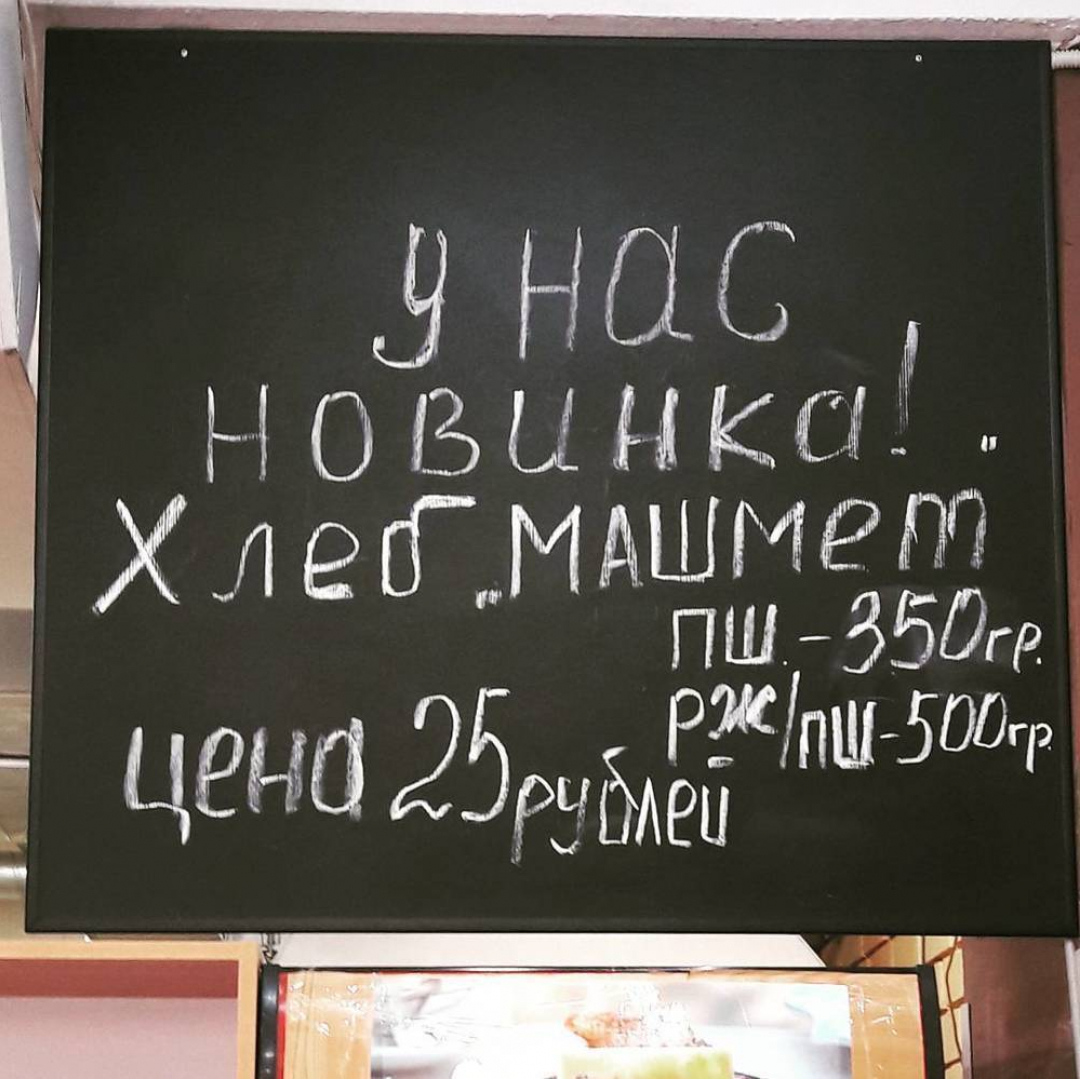 у нас
новинка!
Хлеб „машмет"
пш. - 350гр.
рж/пш-500гр.
цена 25 рублей